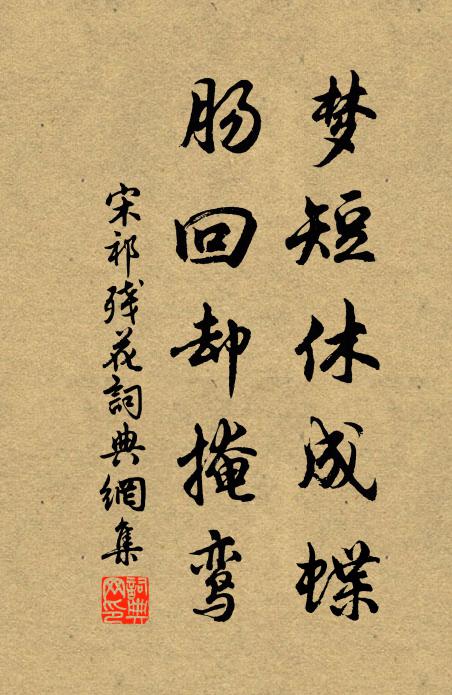 梦短休成蝶
肠回却掩鸾
宋祁残花詞典網集
詞典網印